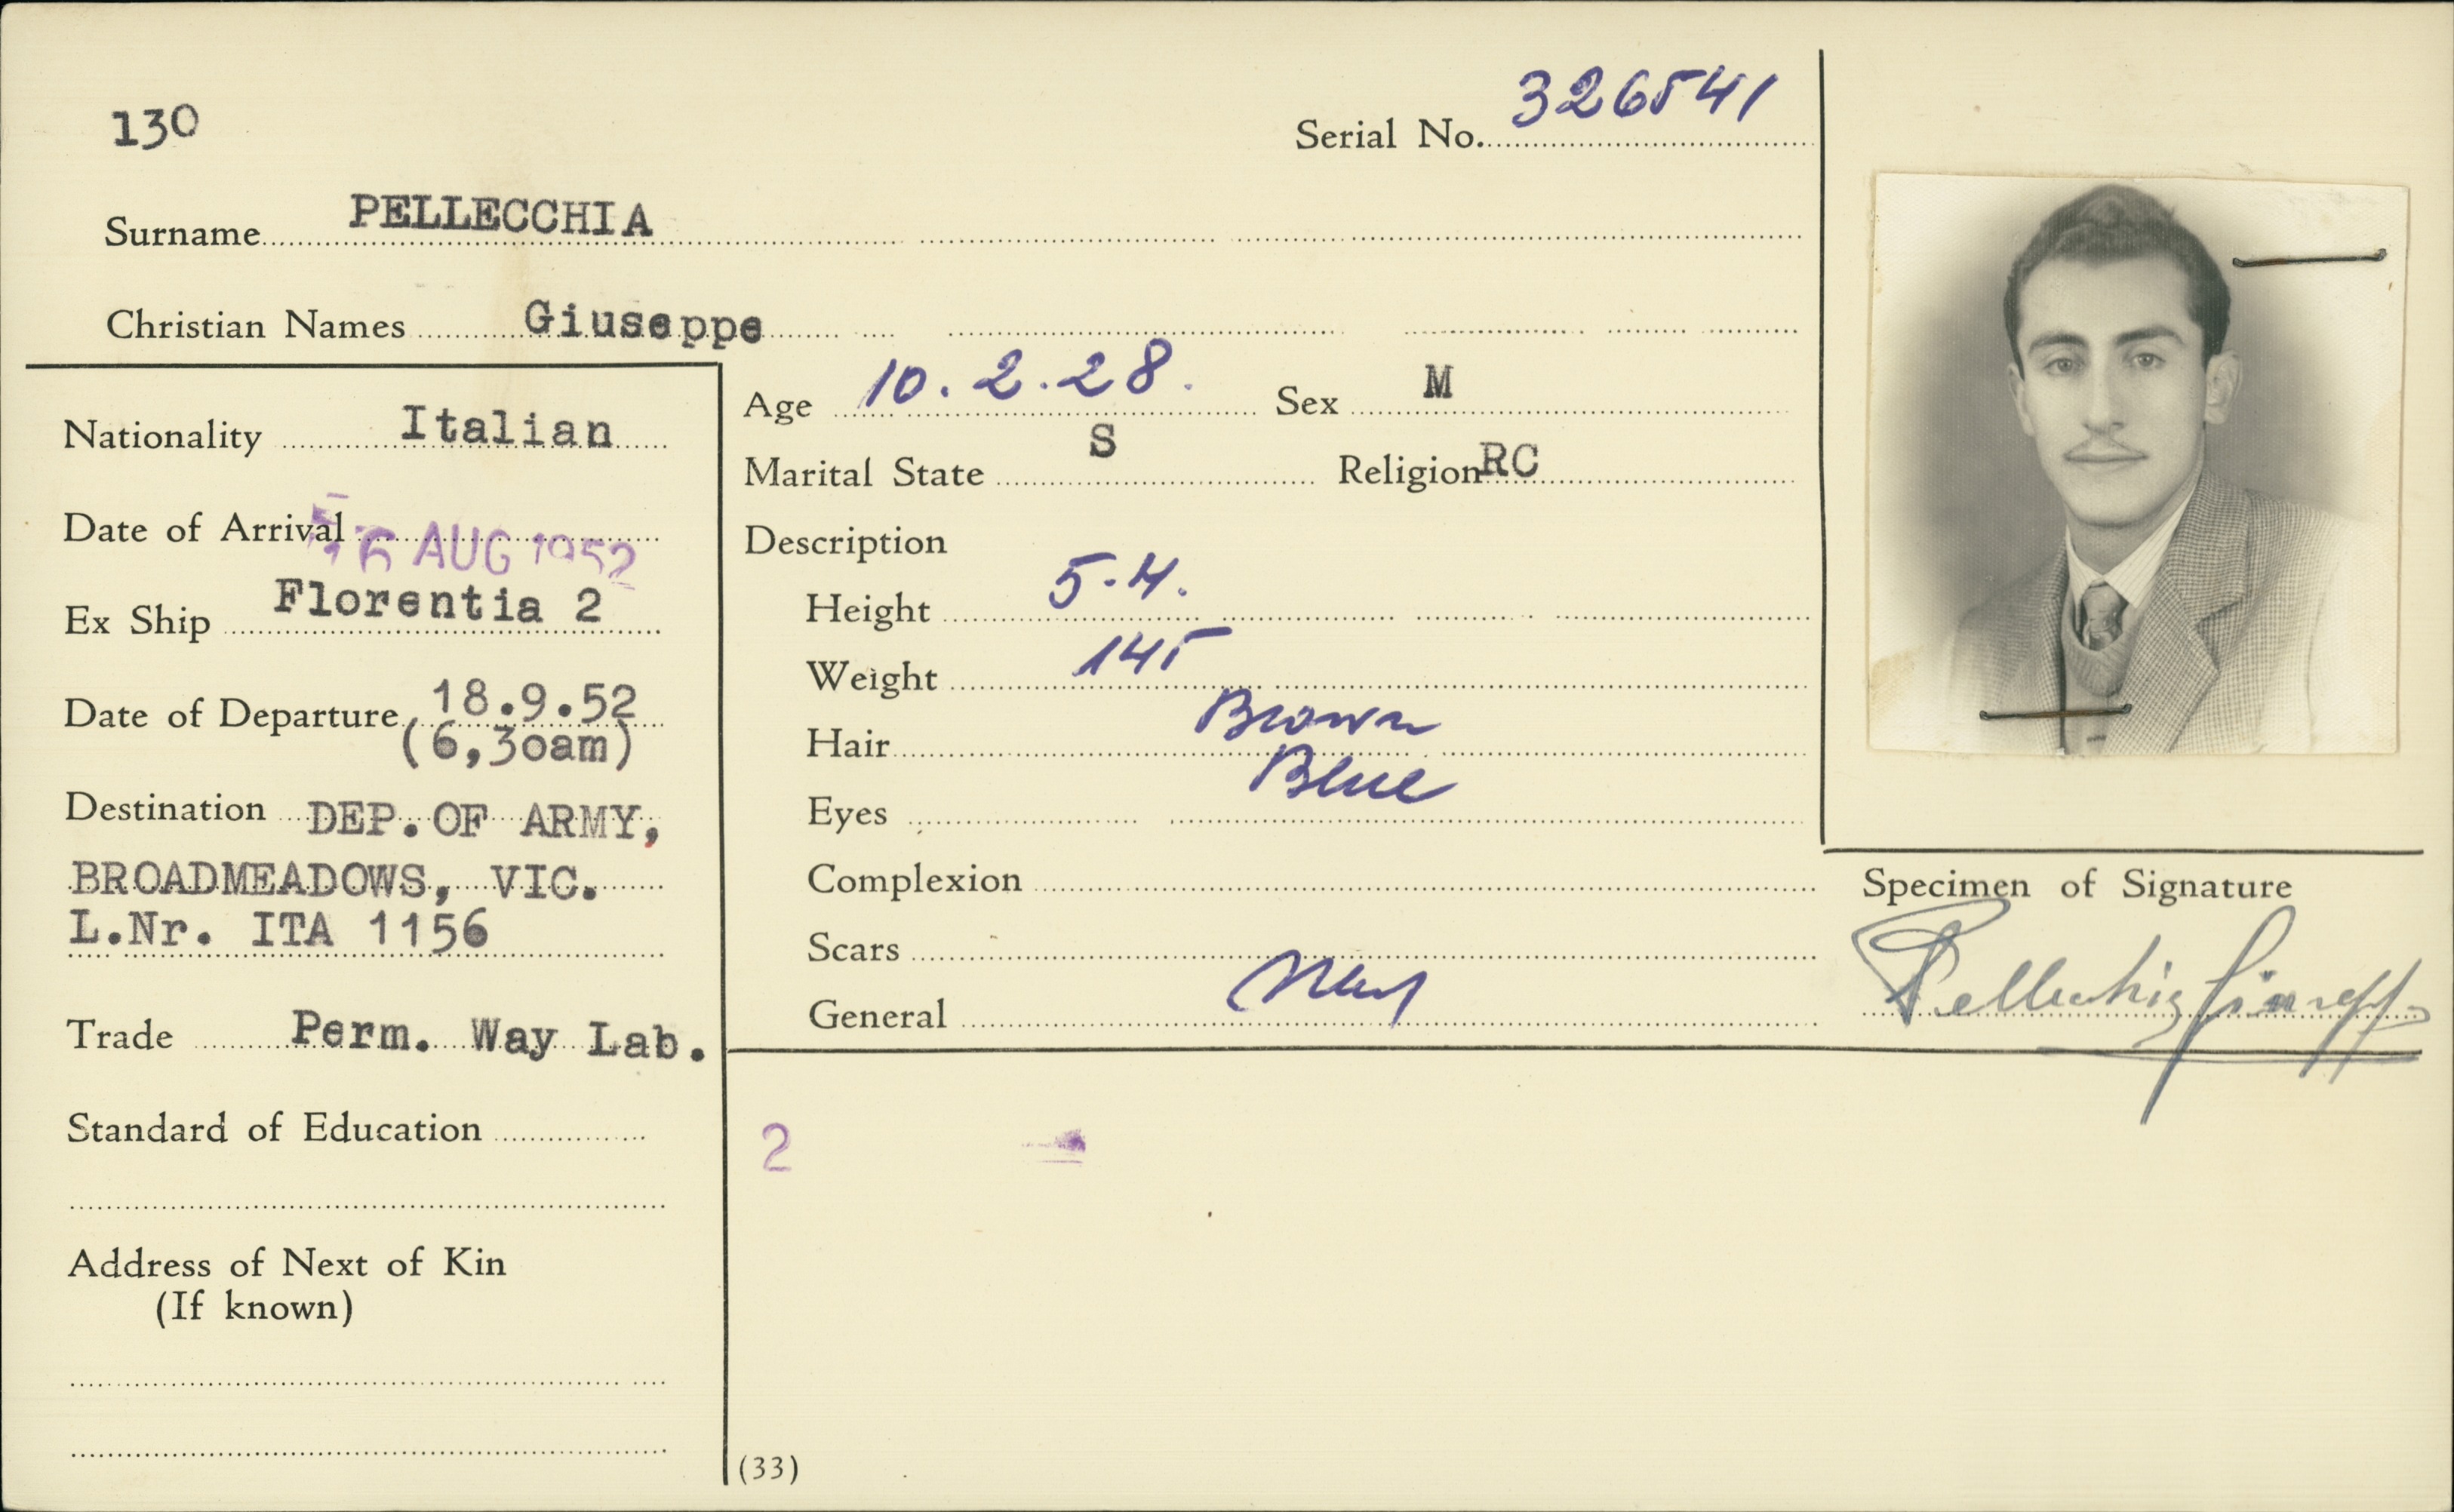 130
Serial No. 326541
Surname PELLECCHIA
Christian Names Giuseppe
Nationality Italian
Date of Arrival 16 AUG 1952
Ex Ship Florentia 2
Date of Departure 18.9.52
(6,30am)
Destination DEP. OF ARMY,
BROADMEADOWS, VIC.
L.Nr. ITA 1156
Trade Perm. Way Lab.
Standard of Education
Address of Next of Kin
(If known)
Age 10.2.28. Sex M
Marital State S Religion RC
Description
Height 5.4.
Weight 145
Hair Brown
Eyes Blue
Complexion
Scars
General
2
(33)
Specimen of Signature
Pellecchia Giuseppe